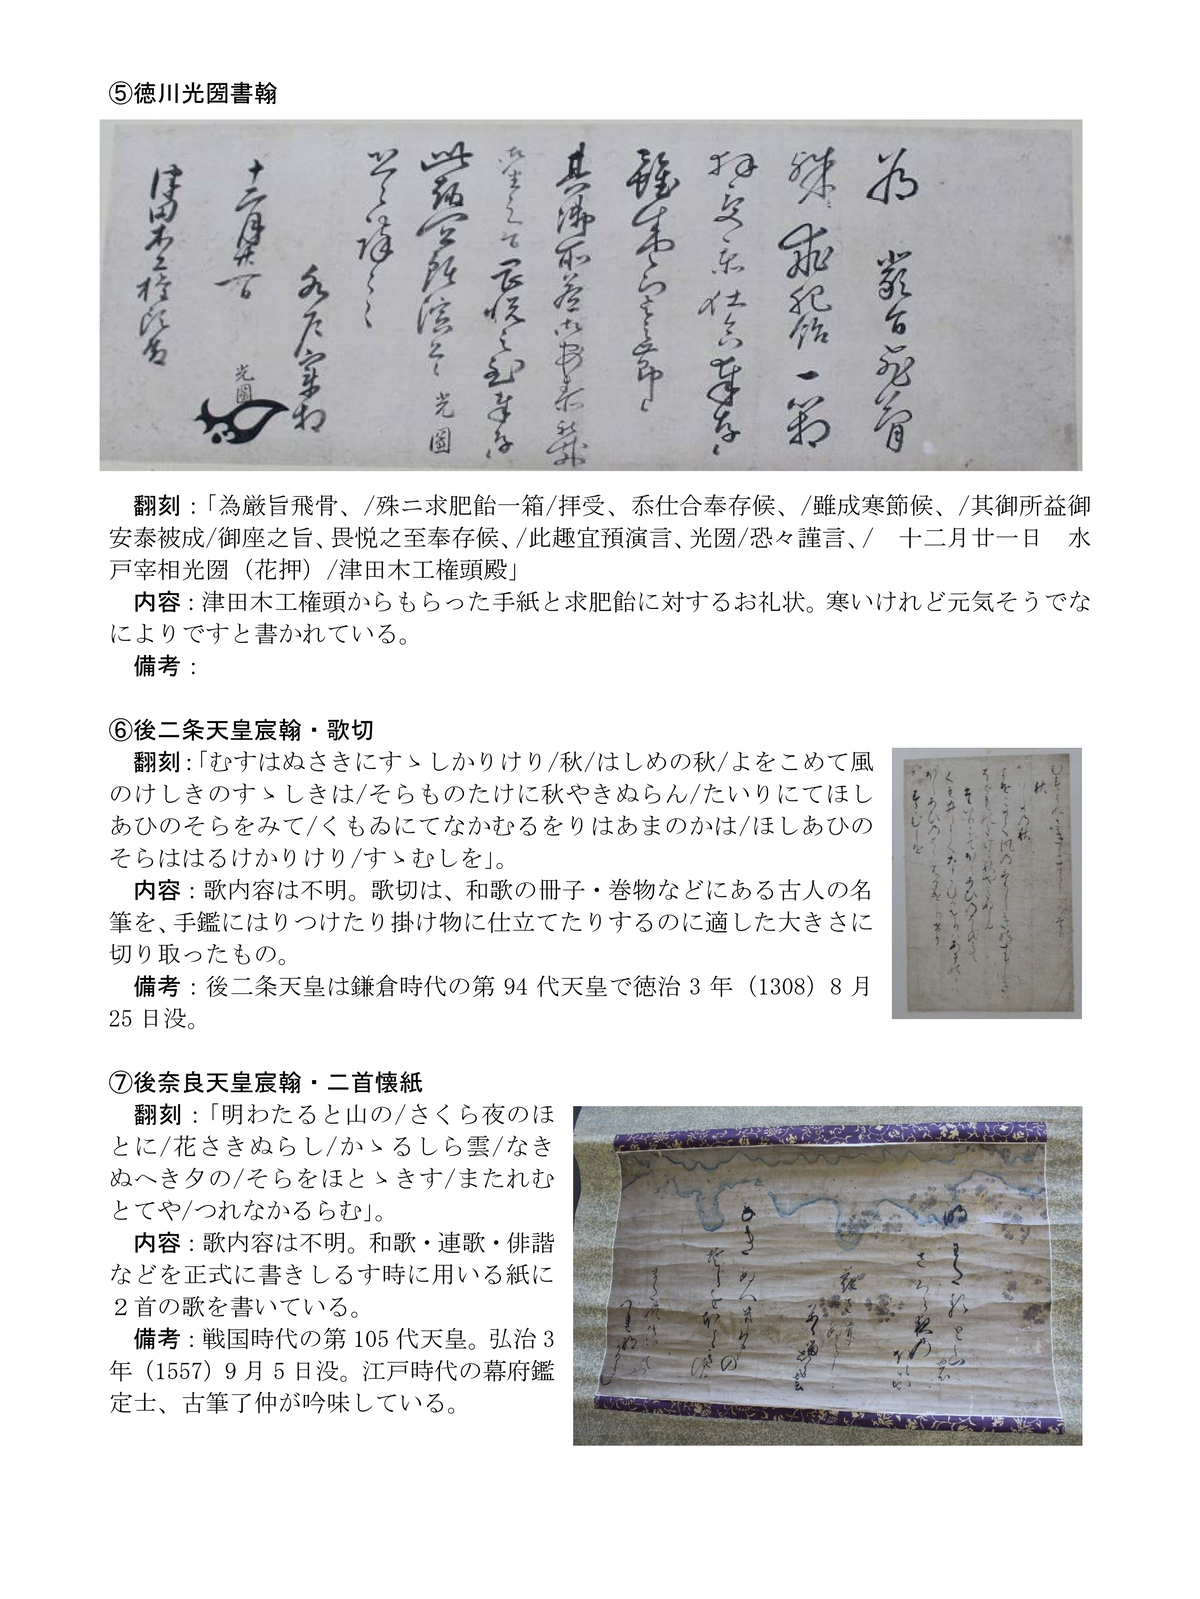 ⑤徳川光圀書翰
為 厳旨飛骨
殊ニ求肥飴一箱
拝受忝仕合奉存候
雖成寒節候
其御所益御安泰被成
御座之旨畏悦之至奉存候
此趣宜預演言 光圀
恐々謹言
水戸宰相
十二月廿一日
光圀
津田木工権頭殿
翻刻：「為厳旨飛骨、/殊ニ求肥飴一箱/拝受、忝仕合奉存候、/雖成寒節候、/其御所益御
安泰被成/御座之旨、畏悦之至奉存候、/此趣宜預演言、光圀/恐々謹言、/　十二月廿一日　水
戸宰相光圀（花押）/津田木工権頭殿」
内容：津田木工権頭からもらった手紙と求肥飴に対するお礼状。寒いけれど元気そうでな
によりですと書かれている。
備考：
⑥後二条天皇宸翰・歌切
翻刻：「むすはぬさきにすゝしかりけり/秋/はしめの秋/よをこめて風
のけしきのすゝしきは/そらものたけに秋やきぬらん/たいりにてほし
あひのそらをみて/くもゐにてなかむるをりはあまのかは/ほしあひの
そらははるけかりけり/すゝむしを」。
内容：歌内容は不明。歌切は、和歌の冊子・巻物などにある古人の名
筆を、手鑑にはりつけたり掛け物に仕立てたりするのに適した大きさに
切り取ったもの。
備考：後二条天皇は鎌倉時代の第 94 代天皇で徳治 3 年（1308）8 月
25 日没。
⑦後奈良天皇宸翰・二首懐紙
翻刻：「明わたると山の/さくら夜のほ
とに/花さきぬらし/かゝるしら雲/なき
ぬへき夕の/そらをほとゝきす/またれむ
とてや/つれなかるらむ」。
内容：歌内容は不明。和歌・連歌・俳諧
などを正式に書きしるす時に用いる紙に
２首の歌を書いている。
備考：戦国時代の第 105 代天皇。弘治 3
年（1557）9 月 5 日没。江戸時代の幕府鑑
定士、古筆了仲が吟味している。